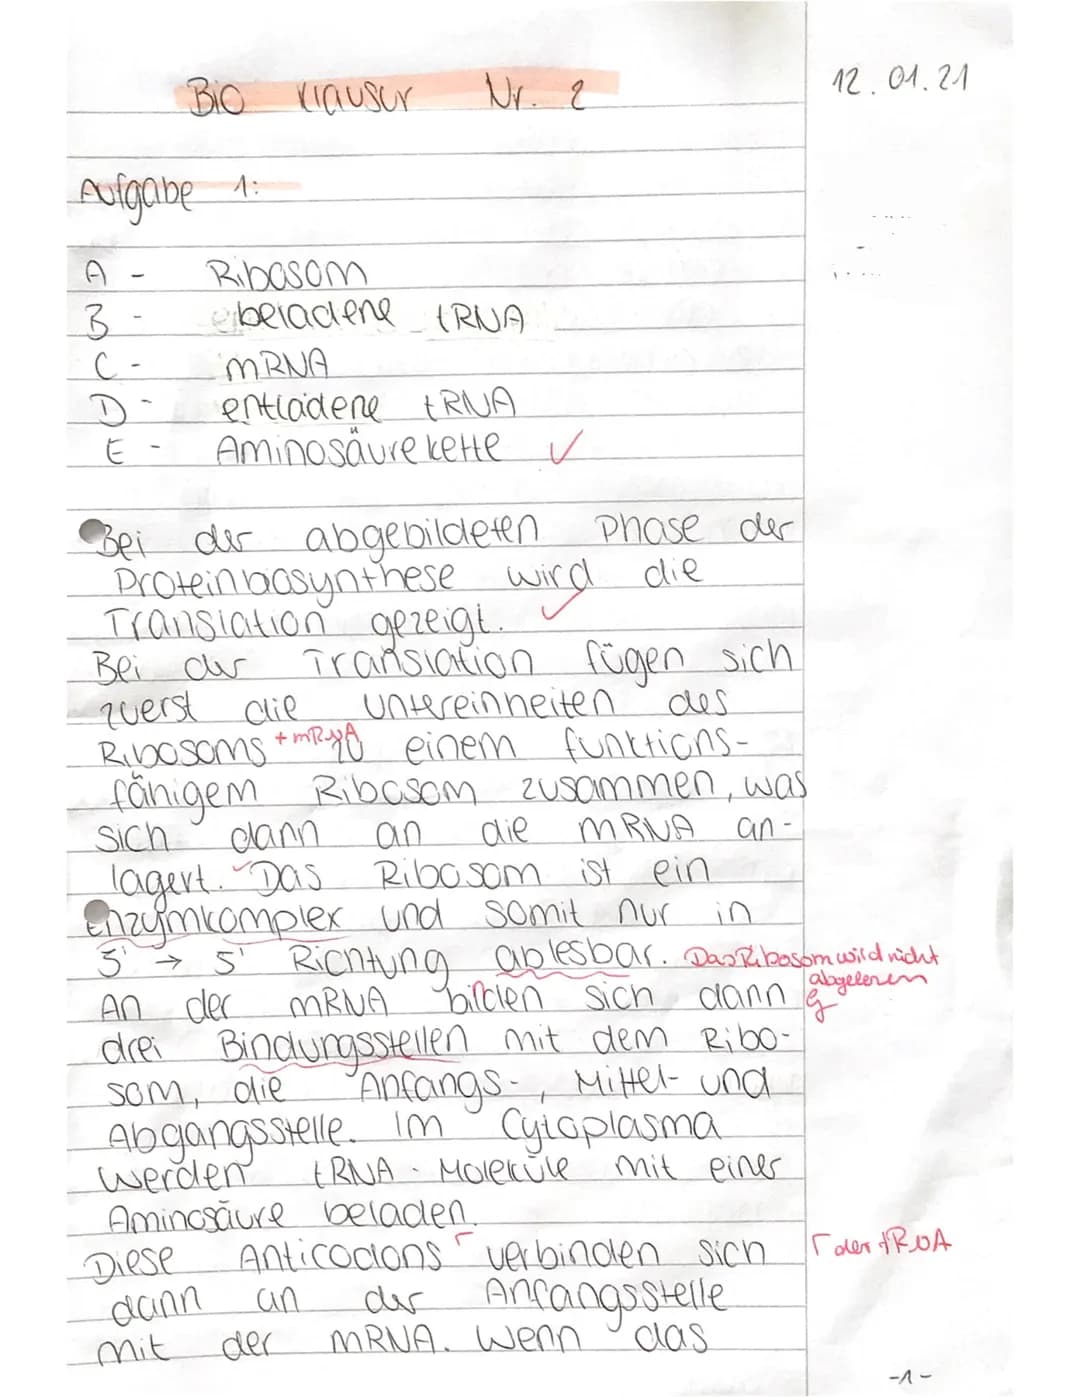 Bio Klausur Nr. 2
12.01.21
Aufgabe 1:
A - Ribosom
B - beladene tRNA
C - mRNA
D - entladene tRNA
E - Aminosäurekette ✓
Bei der abgebildeten Phase der
Proteinbiosynthese wird die
Translation gezeigt. ✓
Bei der Translation fügen sich
zuerst die Untereinheiten des
Ribosoms + mRNA zu einem funktions-
fähigem Ribosom zusammen, was
sich dann an die mRNA an-
lagert. Das Ribosom ist ein
Enzymkomplex und somit nur in
3' → 5' Richtung ablesbar. Das Ribosom wird nicht
abgelesen
An der mRNA bilden sich dann
drei Bindungsstellen mit dem Ribo-
som, die Anfangs-, Mittel- und
Abgangsstelle. Im Cytoplasma
werden tRNA-Moleküle mit einer
Aminosäure beladen.
Diese Anticodons ⌈ verbinden sich ⌈ der tRNA
dann an der Anfangsstelle
mit der mRNA. Wenn das
-1-